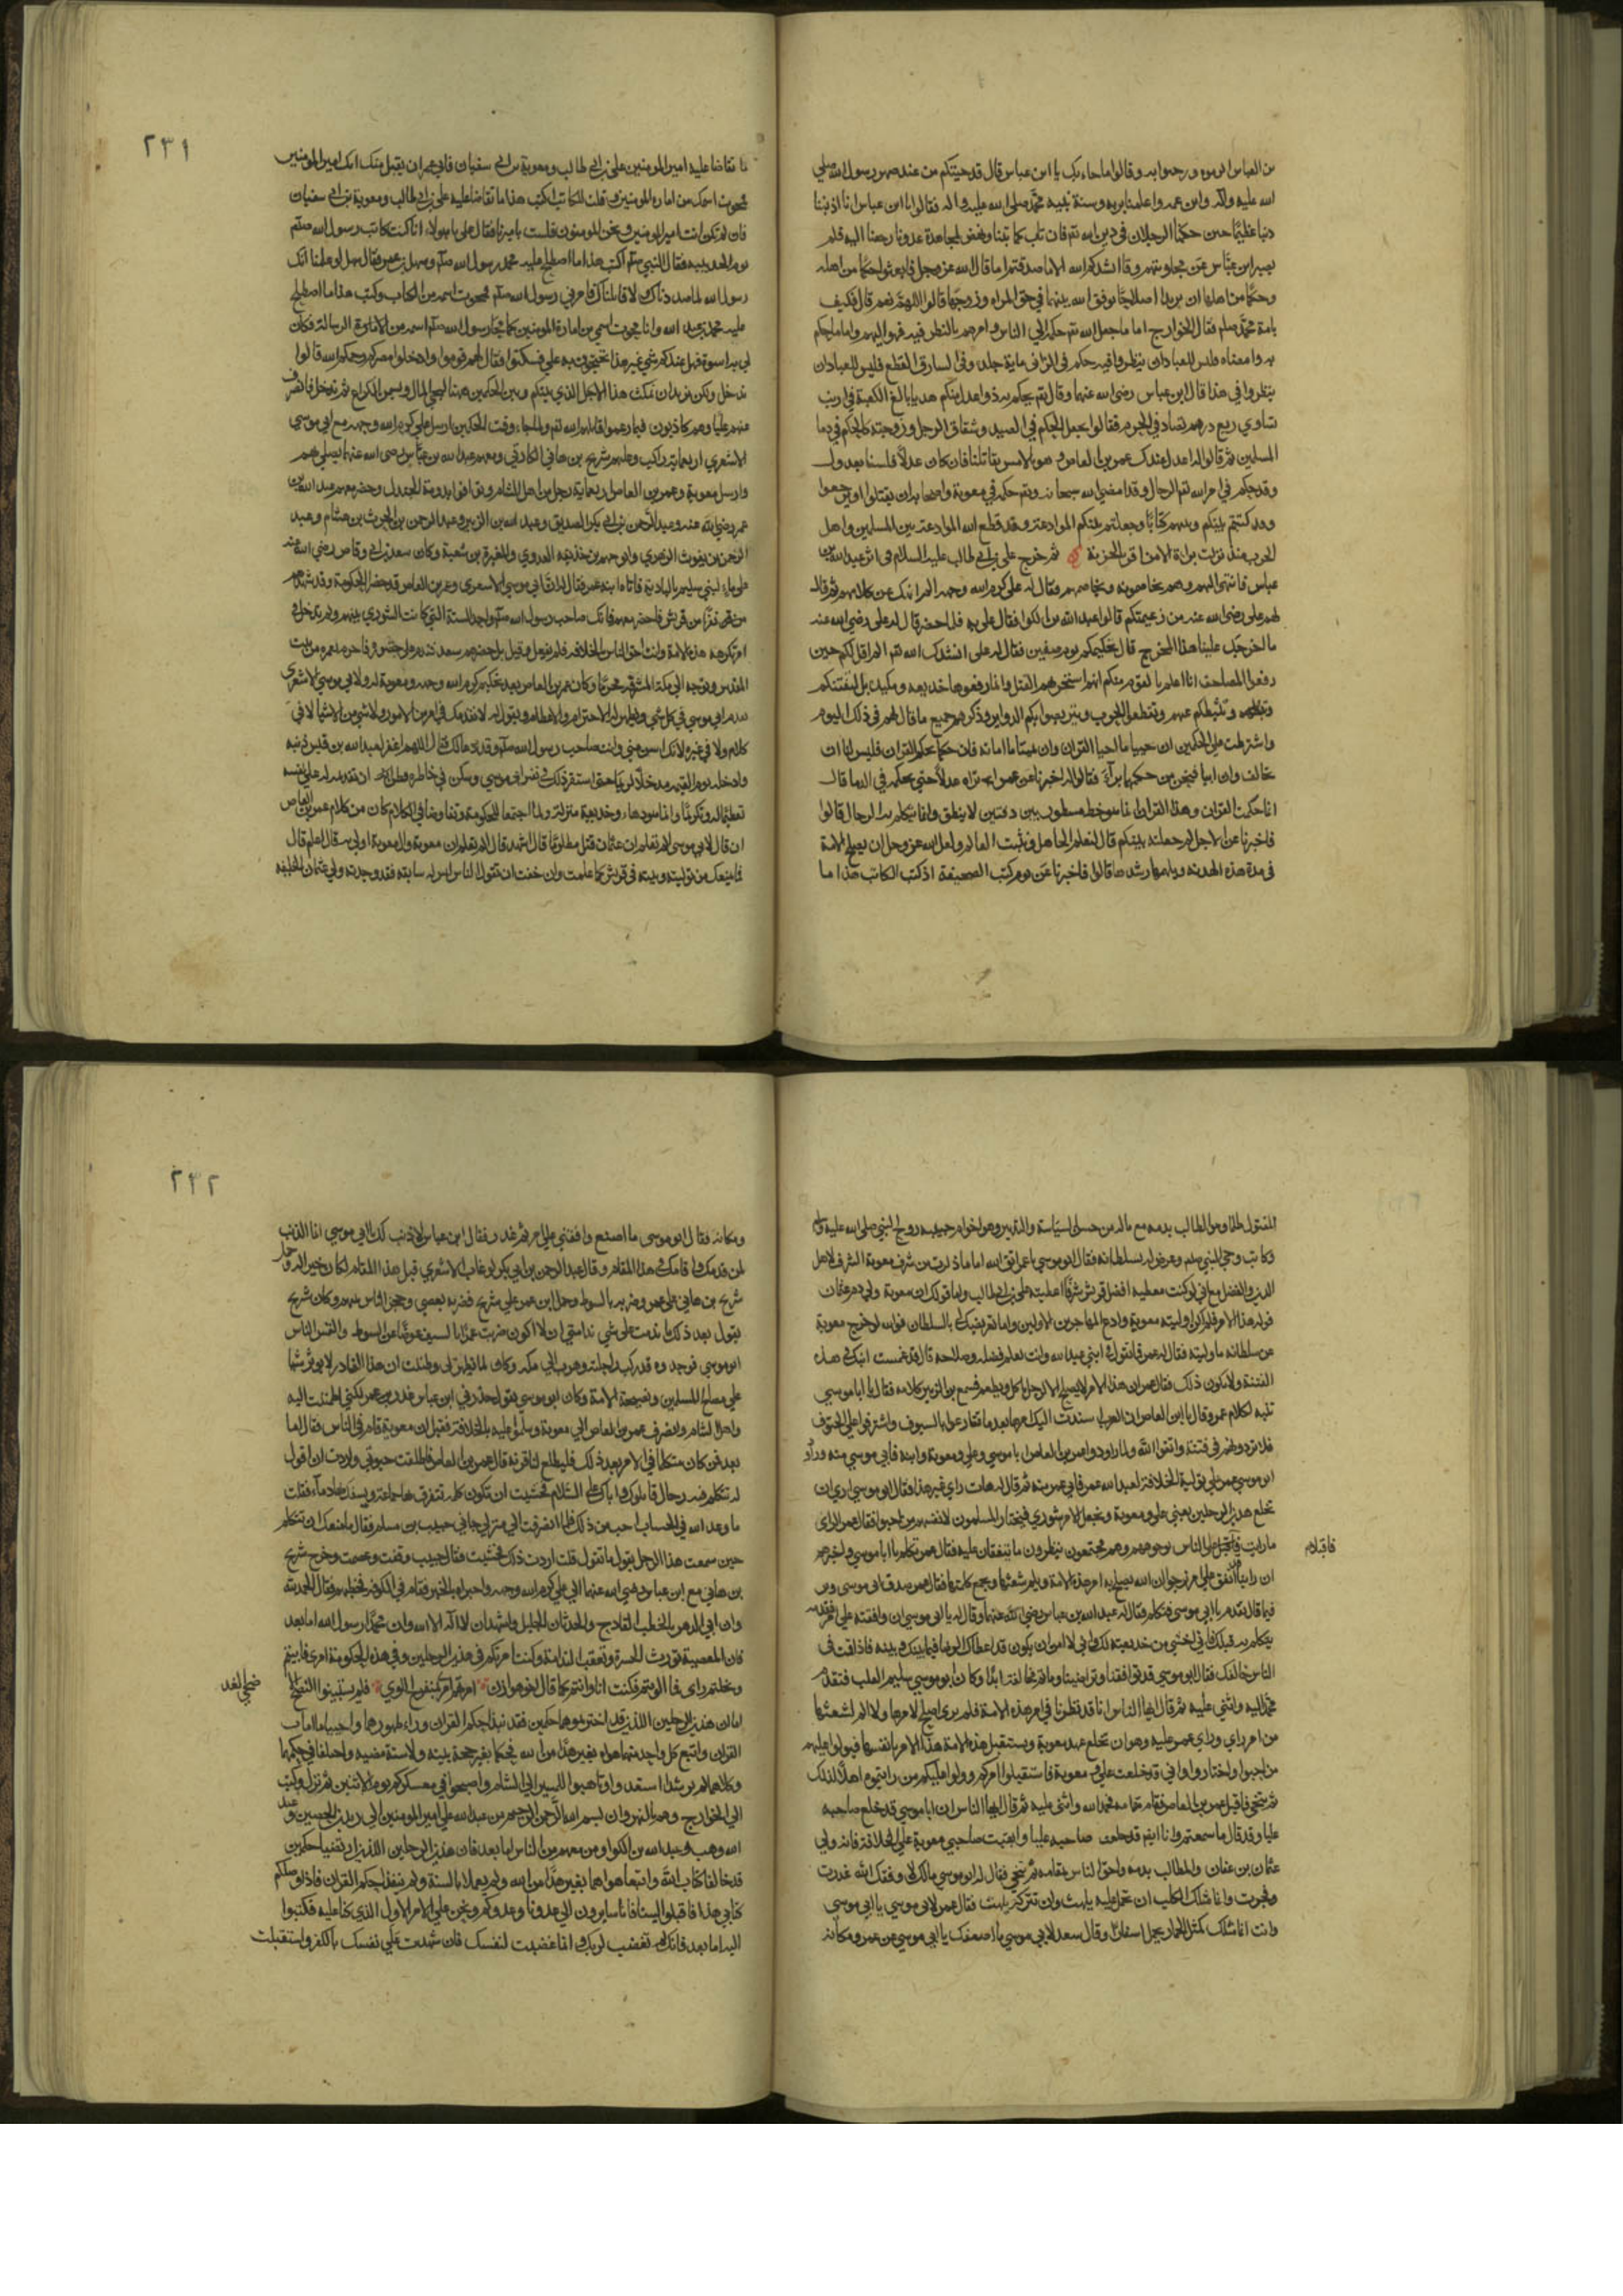 من العباس لوجوه ورجعوا به وقالوا ما جاء بك يا ابن عباس قال قد جيتكم من عند صهر رسول الله صلى
الله عليه واله وابن عمه واعلمنا بربه وسنة نبيه محمد صلى الله عليه واله فقالوا يا ابن عباس انا اذنبنا
ذنبا عظيما حين حكمنا الرجلان في دين الله تم فان تاب كما تبنا ونهض لمجاهدة عدونا رجعنا اليه فلم
يصبر ابن عباس عن مجاوبتهم وقال انشدكم الله الا ما صدقتم اما قال الله عز وجل فابعثوا حكما من اهله
وحكما من اهلها ان يريدا اصلاحا يوفق الله بينهما في حق المراه وزوجها قالوا اللهم نعم قال فكيف
بامة محمد صلم فقال الخوارج اما ما جعل الله تم حكمه الي الناس وامرهم بالنظر فيه فهو اليهم واما ما حكم
به وامضاه فليس للعباد ان ينظروا فيه حكم في الزاني ماية جلدة وفي السارق القطع فليس للعباد ان
ينظروا في هذا قال ابن عباس رضي الله عنهما وقال تم يحكم به ذوا عدل منكم هديا بالغ الكعبة في ارنب
تساوي ربع درهم تصاد في الحرم فقالوا تجعل الحكم في الصيد وشقاق الرجل وزوجته كالحكم في دما
المسلمين ثم قالوا له اعدل عندك عمرو بن العاص وهو بالامس يقاتلنا فان كان عدلا فلسنا بعدول
وقد حكم في امر الله تم الرجال وقد امضى الله سبحانه وتم حكمه في معوية واصحابه ان يقتلوا او يرجعوا
وقد كتبتم بينكم وبينهم كتابا وجعلتم بينكم الموادعة وقد قطع الله الموادعة بين المسلمين واهل
الحرب منذ نزلت براة الا من اقر بالجزية ثم خرج علي بن ابي طالب عليه السلام في اثر عبد الله بن
عباس فانتهى اليهم وهم يخاصمونه ويخاصمهم فقال له علي كرم الله وجهه الم انهك عن كلامهم ثم قال
لهم علي رضي الله عنه من زعيمكم قالوا عبد الله بن الكوا فقال علي به فلما حضر قال له علي رضي الله عنه
ما اخرجك علينا هذا المخرج قال تحكيمكم يوم صفين فقال له علي انشدك الله تم الم اقل لكم حين
رفعوا المصاحف انا اعلم بالقوم منكم انهم استحر بهم القتل وانما رفعوها خديعة ومكيدة بل ليفتنكم
وتثبطكم عنهم وتنقطع الحرب ويتربصوا بكم الدواير وذكرهم جميع ما قال لهم في ذلك اليوم
واشترطت على الحكمين ان يحييا ما احيا القران وان يميتا ما اماته فان حكما بحكم القران فليس لنا ان
نخالف وان ابيا فنحن من حكمهما برآء فقالوا له اخبرنا عن عمرو اتراه عدلا حتى يحكم في الدما قال
انا حكمت القران وهذا القران انما هو خط مسطور بين دفتين لا ينطق وانما يتكلم به الرجال قالوا
فاخبرنا عن الاجل لم جعلته بينكم قال ليعلم الجاهل ويثبت العالم ولعل الله عز وجل ان يصلح الامة
في مدة هذه الهدنه ويلهمها رشدها قالوا فاخبرنا عن يوم كتب الصحيفة اذ كتب الكاتب هذا ما
٢٣١
ما تقاضا عليه امير المومنين علي بن ابي طالب ومعوية بن ابي سفيان فابى عمرو ان يقبل منك انك امير المومنين
فمحوت اسمك من امارة المومنين وقلت للكاتب اكتب هذا ما تقاضا عليه علي بن ابي طالب ومعوية بن ابي سفيان
فان لم تكن انت امير المومنين ونحن المومنون فلست باميرنا فقال علي يا هولاء انا كنت كاتب رسول الله صلم
يوم الحديبيه فقال النبي صلم اكتب هذا ما اصطلح عليه محمد رسول الله صلم وسهيل بن عمرو فقال سهيل لو علمنا انك
رسول الله لما صددناك ولا قاتلناك فامرني رسول الله صلم فمحوت اسمه من الكتاب وكتب هذا ما اصطلح
عليه محمد بن عبد الله وانما محوت اسمي من امارة المومنين كما محا رسول الله صلم اسمه من الرسالة فكان
لي به اسوة فهل عندكم شي غير هذا تحتجون به علي فسكتوا فقال لهم قوموا وادخلوا مصركم رحمكم الله قالوا
ندخل ولكن نريد ان نمكث هذا الاجل الذي بينكم وبين الحكمين ههنا ليجبى المال ويسمن الكراع ثم ندخل فانصرف
عنهم علي وهم كاذبون فيما زعموا قاتلهم الله تم ولما جاء وقت الحكمين ارسل علي كرم الله وجهه مع ابي موسي
الاشعري اربعماية راكب وعليهم شريح بن هاني الحارثي ومعهم عبد الله بن عباس رضى الله عنهما يصلي بهم
وارسل معوية وعمرو بن العاص اربعماية رجل من اهل الشام وتوافوا بدومة الجندل وحضر معهم عبد الله بن
عمر رضي الله عنه وعبد الرحمن بن ابي بكر الصديق وعبد الله بن الزبير وعبد الرحمن بن الحرث بن هشام وعبد
الرحمن بن يغوث الزهري وابو جهم بن حذيفه العدوي والمغيرة بن شعبة وكان سعد بن ابي وقاص رضي الله عنه
على ماء لبني سليم بالبادية فاتاه ابنه عمر فقال له ان ابا موسي الاشعري وعمرو بن العاص قد حضرا للحكومة وقد شهدهم
نفر من قريش فاحضر معهم فانك صاحب رسول الله صلم واحد الستة التي كانت الشورى بينهم ولم تدخل في
امر تكرهه هذه الامة وانت احق الناس بالخلافه فلم يفعل وقيل بل حضرهم سعد ثم ندم على حضوره فاحرم بعمره من بيت
المقدس وتوجه الي مكة المشرفه محرما وكان عمرو بن العاص بعد تحكيم علي كرم الله وجهه ومعوية له ولابي موسي الاشعري
يقدم ابي موسي في كل شي ويظهر له الاحترام والاعظام ويقول له لا نتقدمك في امر من الامور ولا شي من الاشيا لا في
كلام ولا في غيره لانك اسن مني وانت صاحب رسول الله صلم وقد دعا لك فقال اللهم اغفر لعبد الله بن قيس ذنبه
وادخله يوم القيمه مدخلا كريما حتى استقر ذلك في نفس ابي موسي وسكن في خاطره فظن ان تقديمه له على نفسه
تعظيما له وتكريما وانما هو دهاء وخديعة منزلة ولما اجتمعا للحكومة وتفاوضا في الكلام كان من كلام عمرو بن العاص
ان قال لابي موسي الم تعلم ان عثمان قتل مظلوما قال اشهد قال الم تعلم ان معوية وال معوية اولي به قال اعلم قال
فما يمنعك من توليته وبيته في قريش كما علمت وان خفت ان تقول الناس ليس له سابقه فقد وجدته ولي عثمان الخليفه
المقتول ظلما والطالب بدمه مع ماله من حسن السياسة والتدبير وهو اخو ام حبيبه زوج النبي صلى الله عليه وسلم
وكاتب وحي النبي صلم وعرض له بسلطانه فقال ابو موسي يا عمرو اتق الله اما ما ذكرت من شرف معوية الشرف لاهل
الدين والفضل مع اني لو كنت معطيه افضل قريش شرفا اعطيته علي بن ابي طالب واما قولك ان معوية ولي دم عثمان
فوله هذا الامر فلم اكن اوليته معوية وادع المهاجرين الاولين واما تعريضك لي بالسلطان فوالله لو خرج معوية
من سلطانه ما وليته فقال له عمرو فما تقول في ابني عبد الله وانت تعلم فضله وصلاحه قال قد غمست ابنك في هذه
الفتنة ولا يكون ذلك فقال عمرو ان هذا الامر لا يصلح الا لرجل ياكل ويطعم فسمع ابن الزبير كلامه فقال يا ابا موسي
تنبه لكلام عمرو وقال يا ابن العاص ان العرب اسندت اليك امرها بعد ما تقارعوا بالسيوف واشرفوا على الحتوف
فلا تردونهم في فتنة واتقوا الله ولما راود عمرو بن العاص ابا موسي وعلي ومعوية وابنه فابى موسي منه وراود
ابو موسي عمرو على تولية الخلافة لعبد الله عمر فابى عمرو منه ثم قال له هات راي غير هذا فقال ابو موسي ارى ان
نخلع هذين الرجلين يعني علي ومعوية ونجعل الامر شوري فيختار المسلمون لانفسهم من احبوا فقال عمرو الراي
ما رايت فاقبلا على الناس بوجوههم وهم مجتمعون ينظرون ما يتفقان عليه فقال عمرو تكلم يا ابا موسي واخبرهم
فاقبلا م
ان راينا اتفق على امر نرجوا ان الله يصلح به امر هذه الامة ويلم شعثها ويجمع كلمتها فقال عمرو صدق ابي موسي وبر
فيما قال تقدم يا ابي موسى فتكلم فقال له عبد الله بن عباس رضي الله عنهما وقال له يا ابي موسي ان وافقته على امر فقدمه
يتكلم به قبلك فاني اخشى من خديعته لك واني لا امن ان يكون قد اعطاك الرضا فيما بينك وبينه فاذا قمت في
الناس خالفك فقال ابو موسي قد توافقنا وتراضينا وما ثم مخالفة ابدا وكان ابو موسي سليم القلب فتقدم
فحمد الله واثني عليه ثم قال ايها الناس انا قد نظرنا في امر هذه الامة فلم نرى اصلح لامرها ولا الم لشعثها
من امر راي وراي عمرو عليه وهو ان نخلع علي ومعوية وتستقبل هذه الامة هذا الامر بانفسها فيولوا عليهم
من احبوا واختاروا واني قد خلعت علي ومعوية فاستقبلوا امركم وولوا عليكم من رايتموه اهلا لذلك
ثم تنحي فاقبل عمرو بن العاص فقام مقامه فحمد الله واثنى عليه ثم قال ايها الناس ان ابا موسي قد خلع صاحبه
عليا وقد قال ما سمعتم وانا ايضا قد خلعت صاحبه عليا واثبت صاحبي معوية على الخلافة فانه ولي
عثمان بن عفان والمطالب بدمه واحق الناس بمقامه ثم تنحي فقال له ابو موسي مالك لا وفقك الله غدرت
وفجرت وانما مثلك الكلب ان تحمل عليه يلهث وان تتركه يلهث فقال عمرو لابي موسي يا ابي موسي
وانت انما مثلك كمثل الحمار يحمل اسفارا وقال سعد لابي موسي ما اضعفك يا ابي موسي عن عمرو ومكانه
٢٣٢
ومكانه فقال ابو موسى ما اصنع وافقني على امر ثم غدر فقال ابن عباس لا ذنب لك يا ابي موسي انما الذنب
لمن قدمك واقامك في هذا المقام وقال عبد الرحمن بن ابي بكر لو غاب الاشعري قبل هذا المقام لكان خيرا له وحمل
شريح بن هاني على عمرو وضربه بالسوط وحمل ابن عمرو على شريح فضربه بعصى وحجز الناس بينهم وكان شريح
يقول بعد ذلك ما ندمت على شي ندامتي ان لا اكون ضربت عمرا بالسيف عوضا عن السوط والتمس الناس
ابو موسي فوجدوه قد ركب راحلته وهرب الي مكه وكان لما فيل وظننت ان هذا الغادر لا يوثر شيا
علي مصلح المسلمين ونصيحة الامة وكان ابو موسي يقول حذرني ابن عباس غدر عمرو لكني اطمننت اليه
واهل الشام وانصرف عمرو بن العاص الي معوية وسلموا عليه بالخلافة فقيل ان معوية قام في الناس فقال اما
بعد فمن كان متكلما في الامر بعد ذلك فليطلع لنا قرنه قال عمرو بن العاص فاطلقت حبوتي واردت ان اقول
له تكلم فيه رجال قاتلوك واباك على السلام فخشيت ان تكون كلمة تتفرق بها جماعة ويسفك بها دماء فقلت
ما وعد الله في الحساب احب من ذلك فلما انصرفت الي منزلي جاني حبيب بن مسلم فقال ما منعك ان تتكلم
حين سمعت هذا الرجل يقول ما تقول قلت اردت ذلك فخشيت فقال حبيب وفقت وعصمت وخرج شريح
بن هاني مع ابن عباس رضي الله عنهما الي علي كرم الله وجهه واخبراه بالخبر فقام في الكوفه فخطبهم فقال الحمد لله
وان اتى الدهر بالخطب الفادح والحدثان الجليل واشهد ان لا اله الا الله وان محمدا رسول الله اما بعد
فان المعصية تورث الحسرة وتعقب الندامة وكنت امرتكم في هذين الرجلين وفي هذه الحكومة امري فابيتم
ونخلتم راي فالويتم فكنت انا وانتم كما قال اخو هوازن امرتهم امري بمنعرج اللوي فلم يستبينوا النصح الا
ضحي الغد
اما ان هذين الرجلين اللذين قد اخترتموهما حكمين فقد نبذا حكم القران وراء ظهورهما واحييا ما امات
القران واتبع كل واحد منهما هواه بغير هدا من الله فحكما بغير حجة بينه ولا سنة مضيه واختلفا في حكمهما
وكلاهما لم يرشدا استعدوا وتاهبوا للمسير الي الشام واصبحوا في معسكركم يوم الاثنين ثم نزل وكتب
الي الخوارج وهم بالنهروان بسم الله الرحمن الرحيم من عبد الله علي امير المومنين الي زيد بن الحصين وعبد
الله وهب وعبد الله بن الكوا ومن معهم من الناس اما بعد فان هذين الرجلين اللذين ارتضينا حكمين
قد خالفا كتاب الله واتبعا هواهما بغير هدا من الله ولم يعملا بالسنة ولم ينفذا حكم القران فاذا وصلكم
كتابي هذا فاقبلوا الينا فانا سايرون الي عدونا وعدوكم ونحن على الامر الاول الذي كنا عليه فكتبوا
اليه اما بعد فانك لم تغضب لربك وانما غضبت لنفسك فان شهدت على نفسك بالكفر واستقبلت